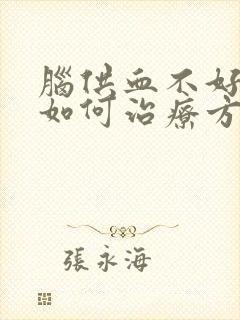 腦供血不好
如何治療方
張永海